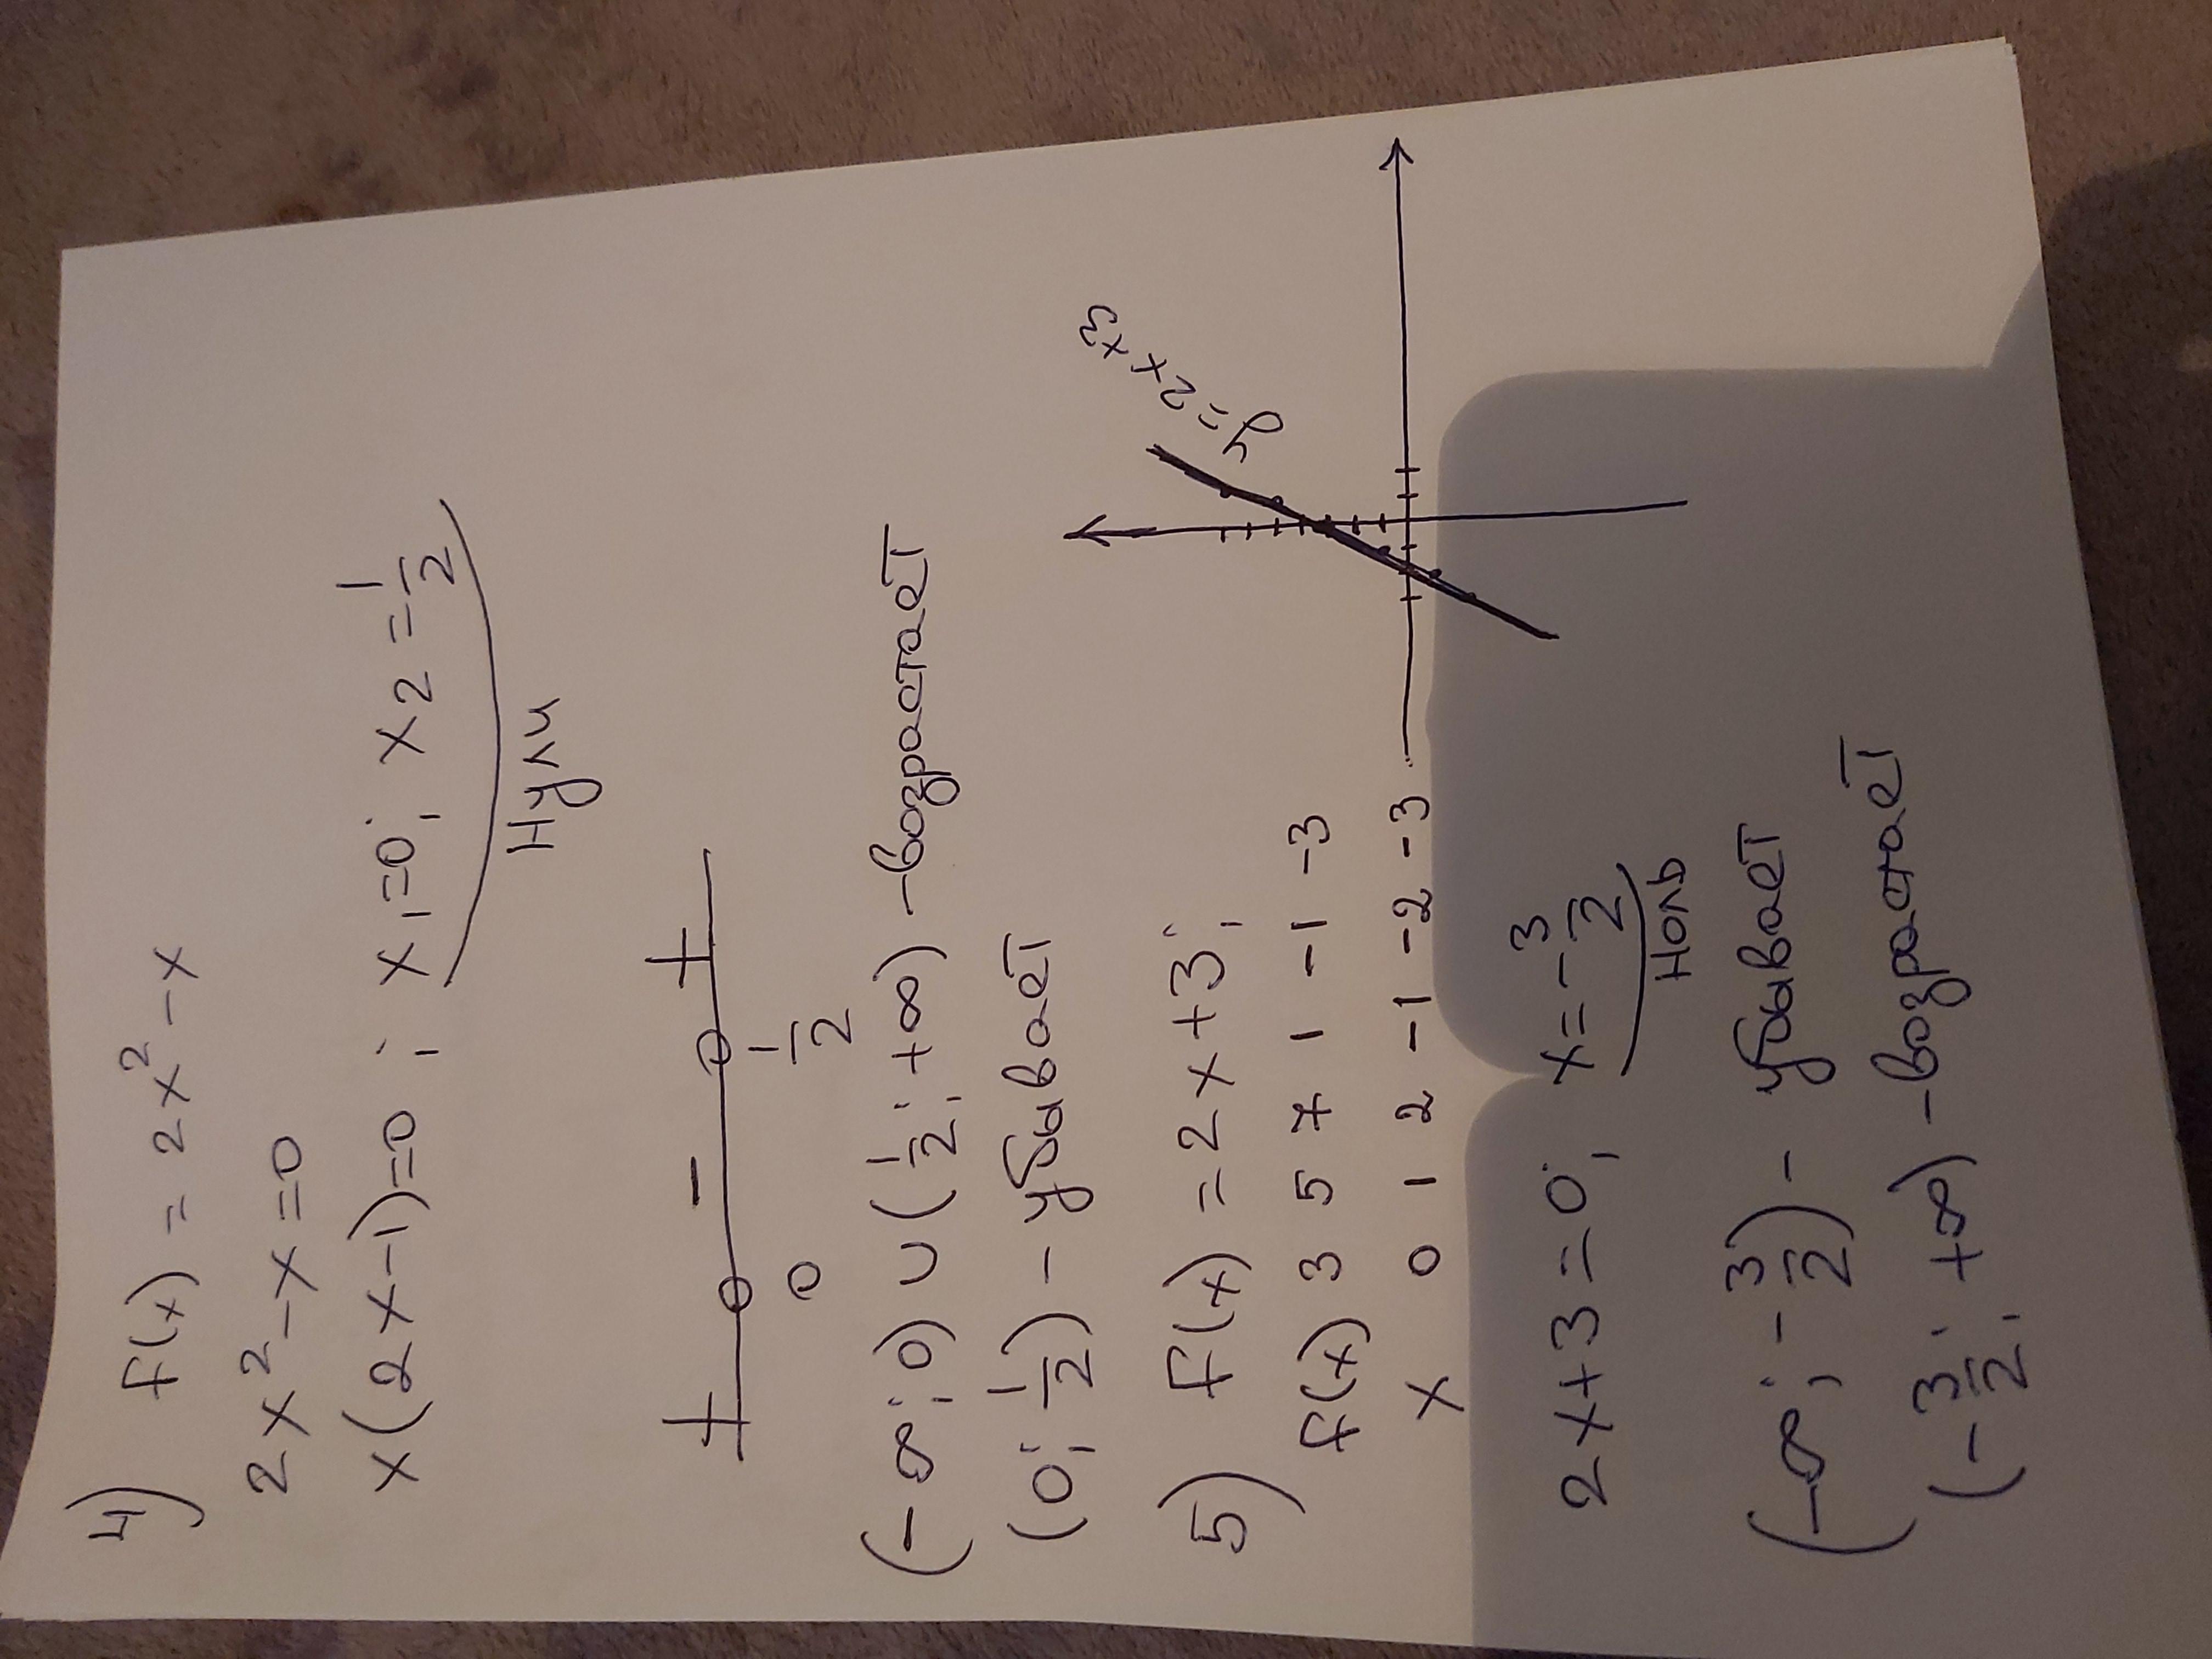 4) f(x) = 2x² - x
2x² - x = 0
x(2x-1)=0 ; x₁=0; x₂=1/2
Нули
+ - +
0 1/2
(-∞; 0) ∪ (1/2; +∞) - возрастает
(0; 1/2) - убывает
5) f(x) = 2x+3;
f(x) 3 5 7 1 -1 -3
x 0 1 2 -1 -2 -3
y=2x+3
2x+3=0; x=-3/2
Ноль
(-∞; -3/2) - убывает
(-3/2; +∞) - возрастает